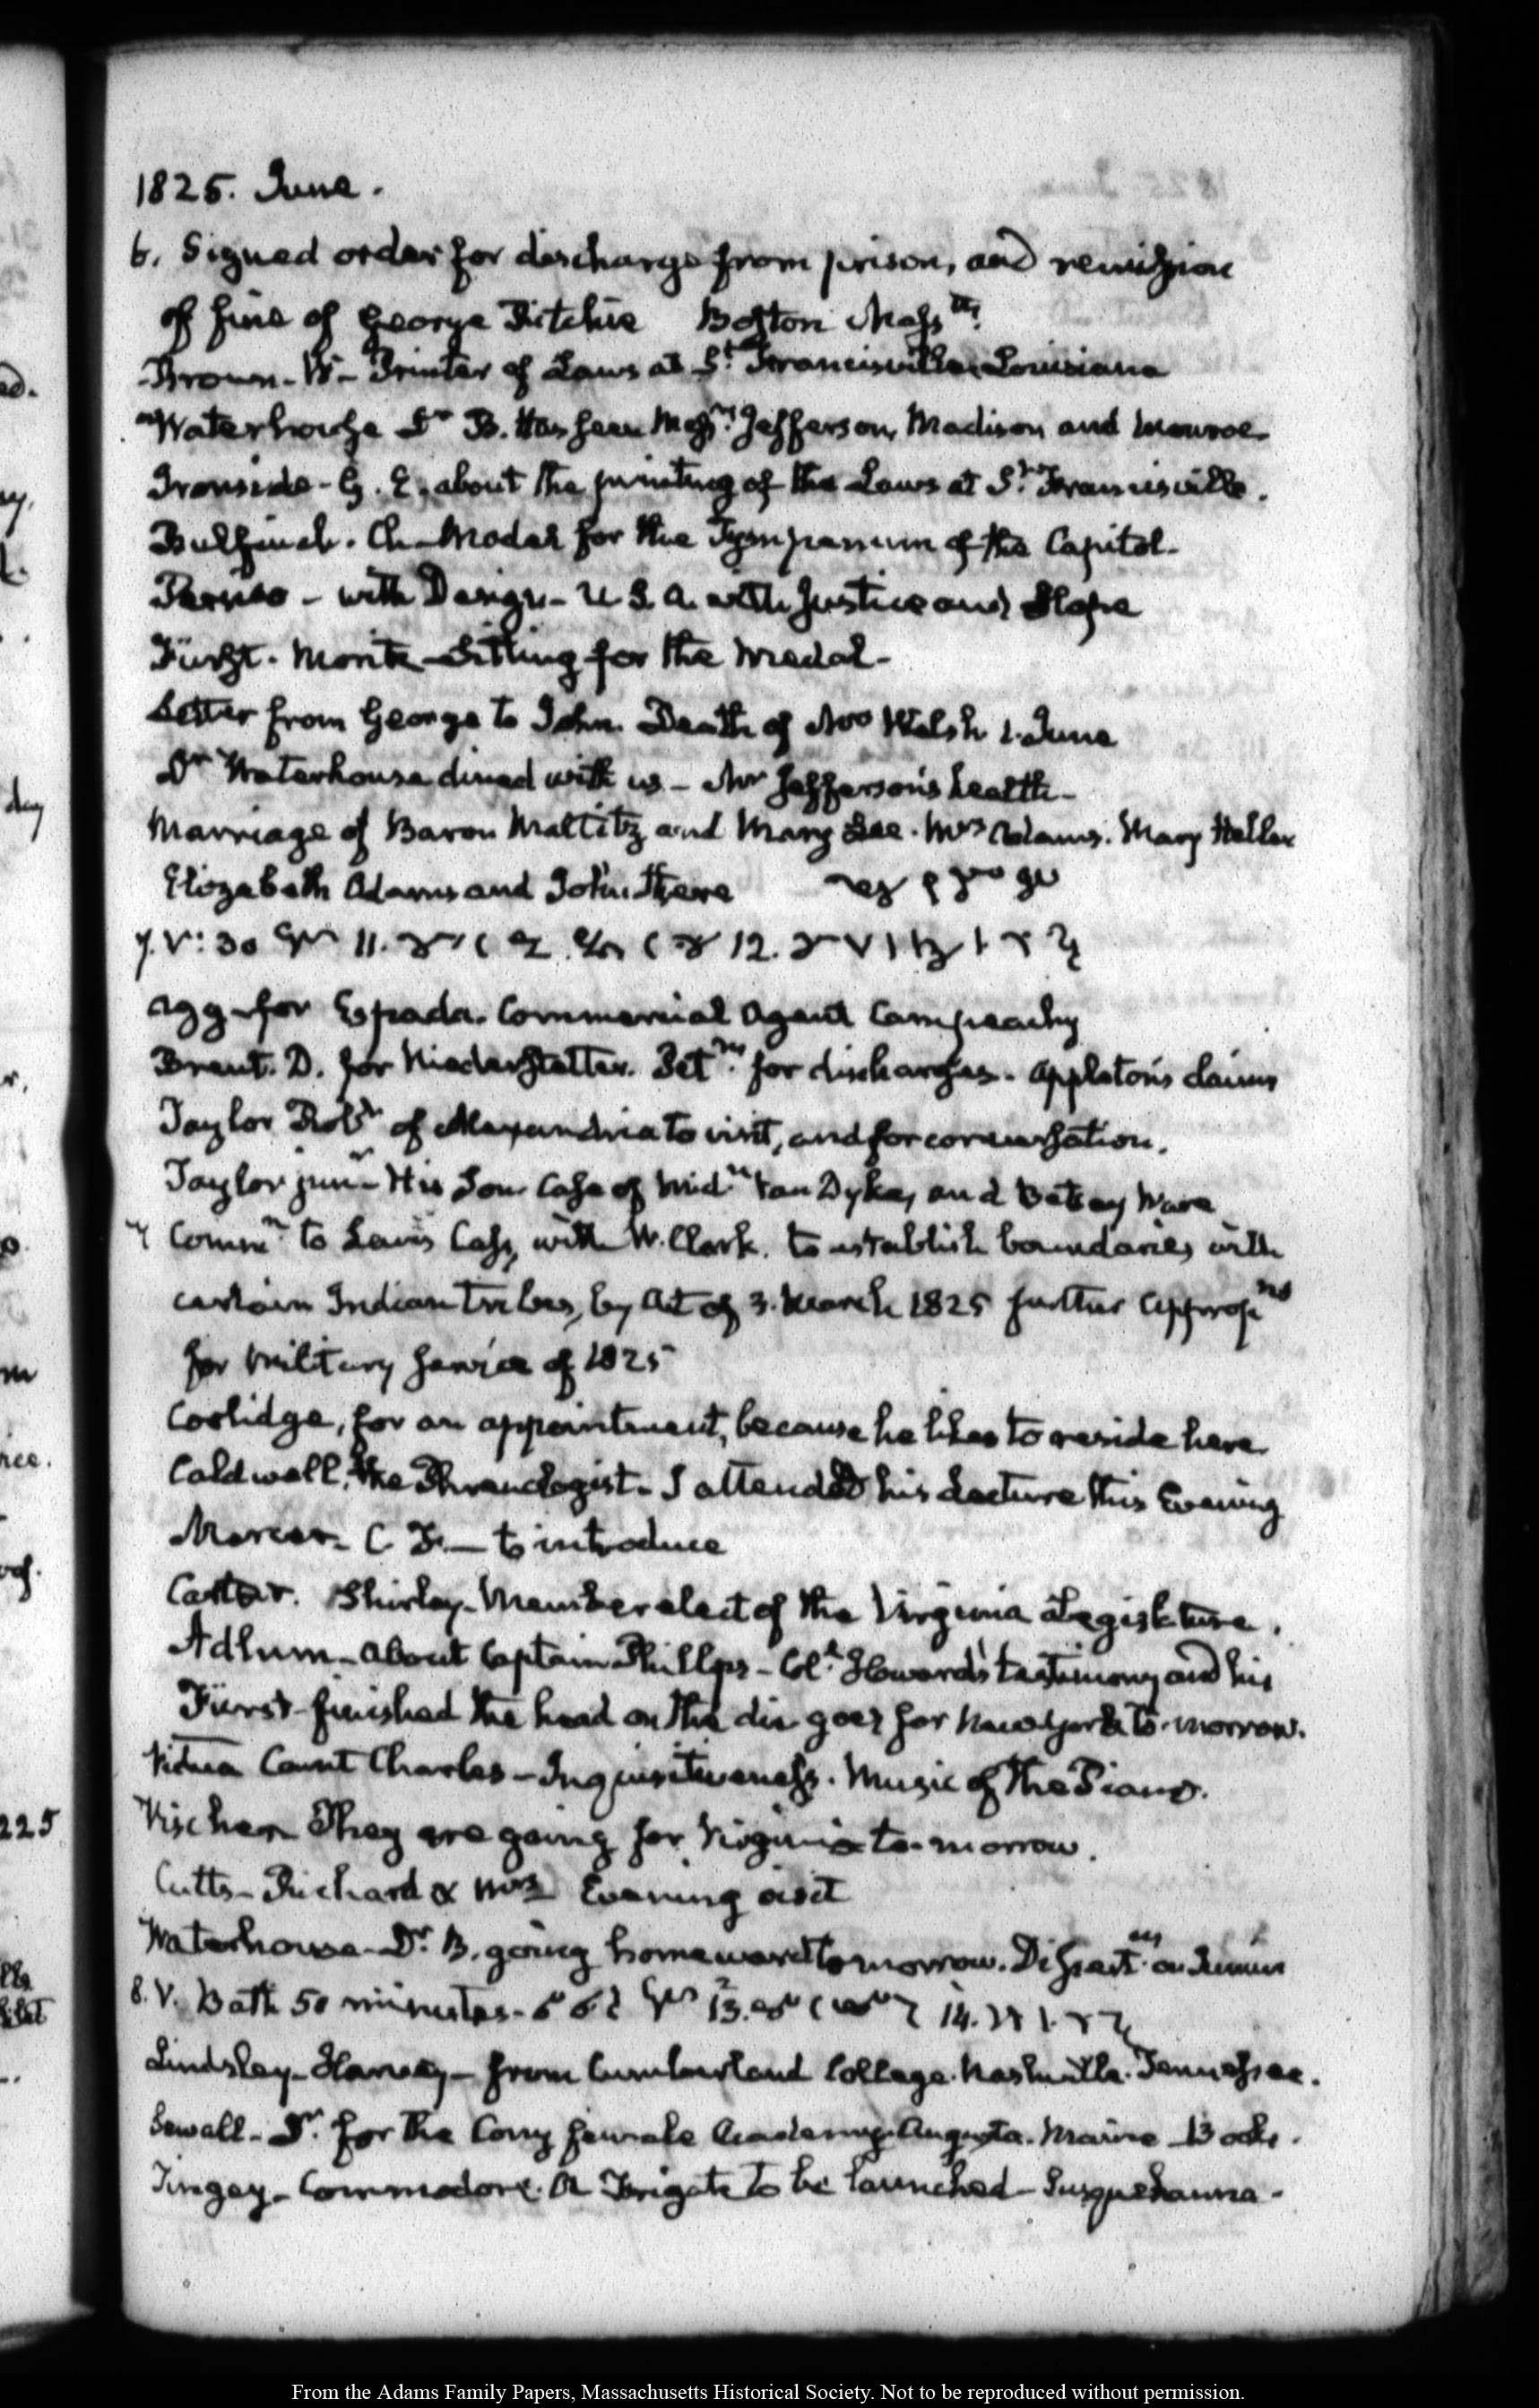 1825. June.
6. Signed order for discharge from prison, and remission
of fine of George Ritchie Boston Mass
Brown - W - Printer of Laws at St. Francisville, Louisiana
Waterhouse Dr. B. Has seen Messrs. Jefferson, Madison and Monroe
Ironside - G. E. about the printing of the Laws at St. Francisville.
Bulfinch. Ch - Model for the Tympanum of the Capitol -
Persico - with Design - U S. A. with Justice and Hope
Fürst. Moritz - Sitting for the Medal -
Letter from George to John. Death of Welsh 1. June
Dr. Waterhouse dined with us - Mr Jefferson's health -
Marriage of Baron Maltitz and Mary Lee. Mrs Adams. Mary Hellen
Elizabeth Adams and John there
7. V: 30 11. 12.
Agg - for Espada. Commercial Agent Campeachy
Brent. D. for Niederstetter. for discharges. Appleton's claims
Taylor Robt. of Alexandria to visit, and for conversation.
Taylor junr - His Son. Case of Midn Van Dyke, and Betsey Ware
Commn. to Lewis Cass, with W. Clark. to establish boundaries with
certain Indian tribes, by Act of 3. March 1825 further Approp
for Military Service of 1825
Coolidge, for an appointment, because he likes to reside here
Caldwell. the Phrenologist - I attended his Lecture this Evening
Mercer - C. F. - to introduce
Carter. Shirley - Member elect of the Virginia Legislature.
Adlum - about Captain Phillips - Col. Howard's testimony and his
Fürst - finished the head on the die goes for New York to-morrow.
Vidua Count Charles - Inquisitiveness. Music of the Piano.
Vischer They are going for Virginia to-morrow.
Cutts - Richard & Mrs Evening visit
Waterhouse - Dr. B. going homeward to morrow. on
8. V. Bath 50 minutes - 13. 14.
Lindsley - Harvey - from Cumberland College. Nashville. Tennessee.
Sewall - Dr. for the Cony female Academy. Augusta. Maine - Books.
Tingey - Commodore. A Frigate to be launched - Susquehanna -
From the Adams Family Papers, Massachusetts Historical Society. Not to be reproduced without permission.